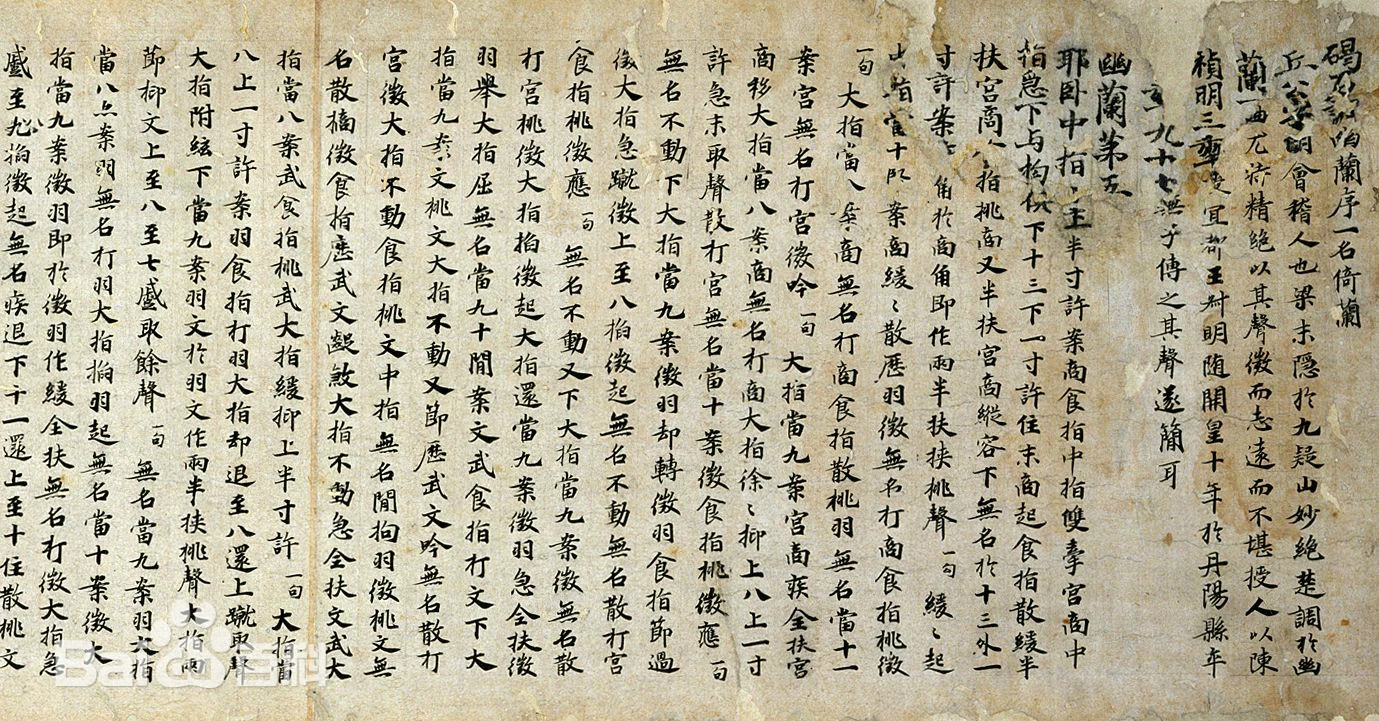 碣石調幽蘭序一名倚蘭
丘公字明會稽人也梁末隱於九疑山妙絕楚調於幽
蘭一曲尤精絕以其聲微而志遠而不堪授人以陳
禎明三年授宜都王叔明随開皇十年於丹陽縣卒
九十七無子傳之其聲遂簡耳
幽蘭第五
耶卧中指半寸許案商食指中指雙牽宮商中
指急下与拘俱下十三下一寸許住末商起食指散緩半
扶宮商食指挑商又半扶宮商縱容下無名於十三外一
寸許案商角於商角即作兩半扶挾挑聲一句緩〻起
指當十案商緩〻散歷羽徵無名打商食指挑徵
一句大指當八案商無名打商食指散挑羽無名當十一
案宮無名打宮徵吟一句大指當九案宮商疾全扶宮
商移大指當八案商無名打商大指徐〻抑上八上一寸
許急末取聲散打宮無名當十案徵食指挑徵應一句
無名不動下大指當九案徵羽却轉徵羽食指節過
後大指急蹴徵上至八掐徵起無名不動無名散打宮
食指挑徵應一句無名不動又下大指當九案徵無名散
打宮挑徵大指掐徵起大指還當九案徵羽急全扶徵
羽舉大指屈無名當九十間案文武食指打文下大
指當九案文挑文大指不動又節歷武文吟無名散打
宮徵大指不動食指挑文中指無名間拘羽徵挑文無
名散摘徵食指歷武文齪煞大指不動急全扶文武大
指當八案武食指挑武大指緩抑上半寸許一句大指當
八上一寸許案羽食指打羽大指却退至八還上蹴取聲
大指附絃下當九案羽文於羽文作兩半挾挑聲大指兩
節抑文上至八至七蹙取餘聲一句無名當九案羽大指
當八案羽無名打羽大指掐羽起無名當十案徵大
指當九案徵羽即於徵羽作緩全扶無名打徵大指急
蹙至九掐徵起無名疾退下十一還上至十住散挑文
Baidu百科